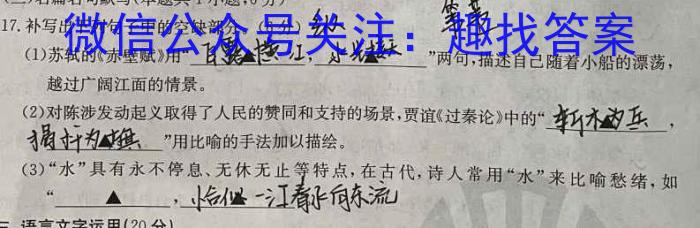 17.补写出下列句子中的空缺部分。
微信公众号关注：趣找答案
(1)苏轼的《赤壁赋》用“白露横江，水光接天”两句，描述自己随着小船的漂荡，
越过广阔江面的情景。
(2)对陈涉发动起义取得了人民的赞同和支持的场景，贾谊《过秦论》中的“斩木为兵，
揭竿为旗”用比喻的手法加以描绘。
(3)“水”具有永不停息、无休无止等特点，在古代，诗人常用“水”来比喻愁绪，如
“▲，恰似一江春水向东流
三、语言文字运用(20分)